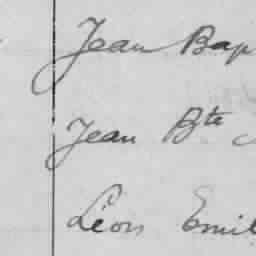 Jean Bap
Jean Bte
Léon Emil